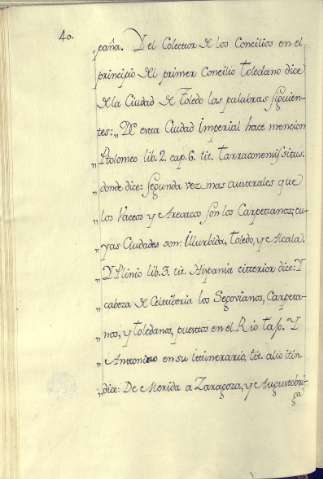 40.
paña. Y el Colector de los Concilios en el
principio del primer Concilio Toledano dice
de la Ciudad de Toledo las palabras siguien-
tes: „ De esta Ciudad Imperial hace mencion
„ Ptolomeo lib. 2. cap. 6. tit. Tarraconensis situs.
donde dice: segunda vez mas australes que
„ los Vaceos y Arevacos son los Carpetanos; cu-
yas Ciudades son: Illurbida, Toledo, y Alcalá.
„ Y Plinio lib. 3. tit. Hispania citerior dice: Y
„ cabeza de Celtiberia los Segovianos, Carpeta-
„ nos, y Toledanos, puestos en el Rio Tajo. Y
„ Antonino en su itinerario, tit. alio itin.
dice: De Merida a Zaragoza, y Augustobri-
ga